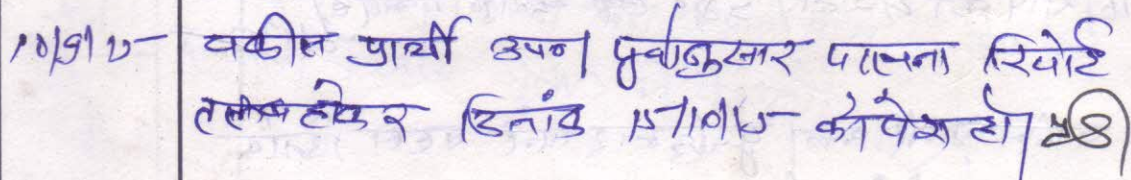 10/9/15- वकील प्रार्थी उप० पूर्वानुसार पालना रिपोर्ट
तलब होकर दिनांक 15/10/15 को पेश हो।